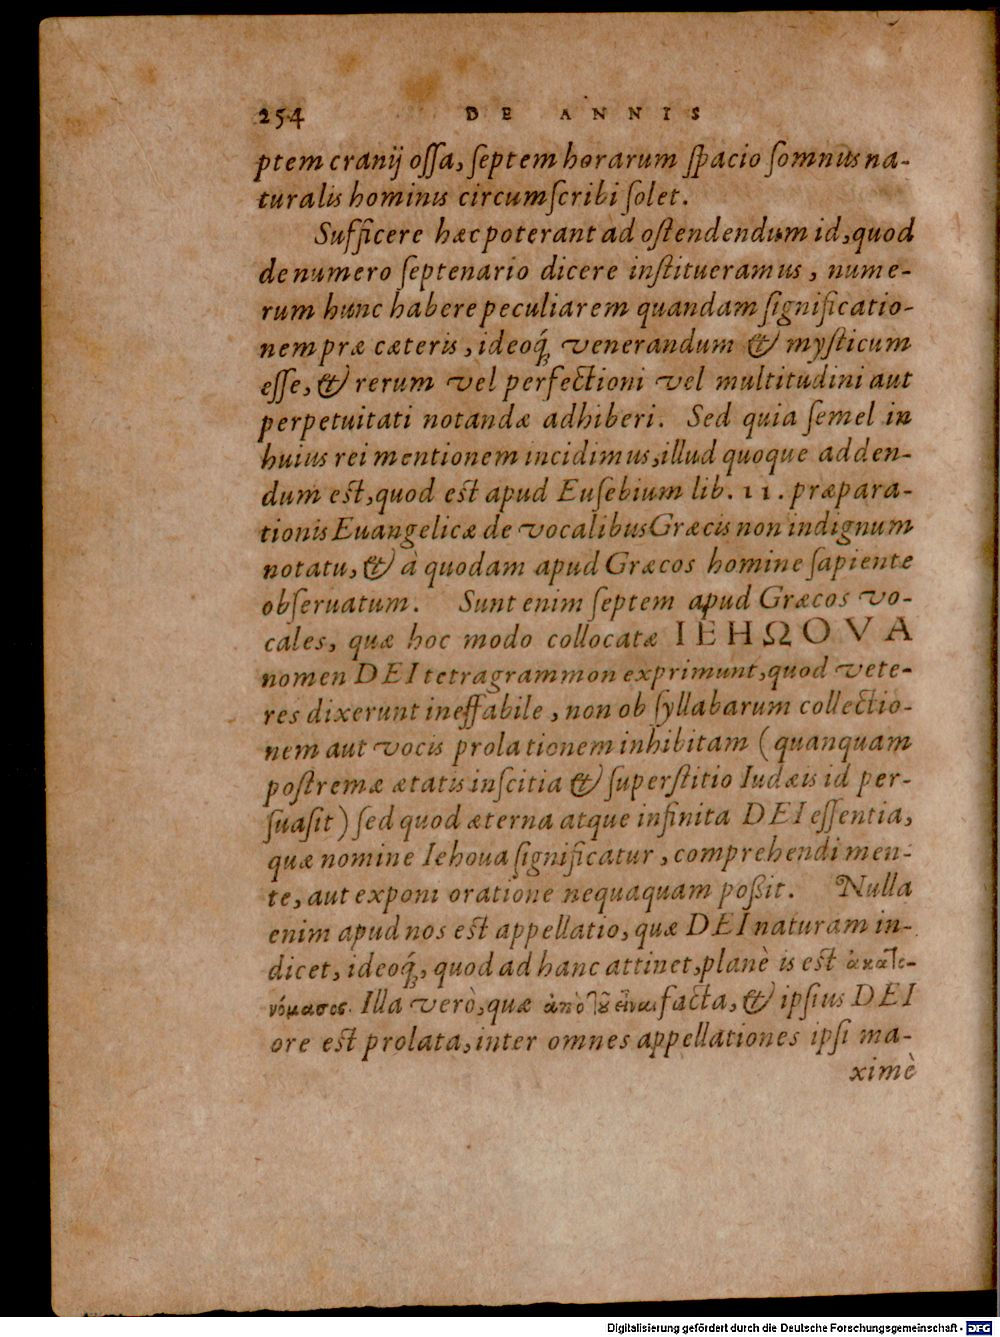 254 DE ANNIS
ptem cranij oſſa, ſeptem horarum ſpacio ſomnus na-
turalis hominis circumſcribi ſolet.
Sufficere hæc poterant ad oſtendendum id, quod
de numero ſeptenario dicere inſtitueramus, nume-
rum hunc habere peculiarem quandam ſignificatio-
nem præ cæteris, ideoq́; venerandum & myſticum
eſſe, & rerum vel perfectioni vel multitudini aut
perpetuitati notandæ adhiberi. Sed quia ſemel in
huius rei mentionem incidimus, illud quoque adden-
dum eſt, quod eſt apud Euſebium lib. 11. præpara-
tionis Euangelicæ de vocalibus Græcis non indignum
notatu, & à quodam apud Græcos homine ſapiente
obſeruatum. Sunt enim ſeptem apud Græcos vo-
cales, quæ hoc modo collocatæ IEHΩOVA
nomen DEI tetragrammon exprimunt, quod vete-
res dixerunt ineffabile, non ob ſyllabarum collectio-
nem aut vocis prolationem inhibitam (quanquam
poſtremæ ætatis inſcitia & ſuperſtitio Iudæis id per-
ſuaſit) ſed quod æterna atque infinita DEI eſſentia,
quæ nomine Iehoua ſignificatur, comprehendi men-
te, aut exponi oratione nequaquam poßit. Nulla
enim apud nos eſt appellatio, quæ DEI naturam in-
dicet, ideoq́;, quod ad hanc attinet, planè is eſt ἀκατο-
νόμαστος. Illa verò, quæ ἀπὸ τοῦ εἶναι facta, & ipſius DEI
ore eſt prolata, inter omnes appellationes ipſi ma-
ximè
Digitalisierung gefördert durch die Deutsche Forschungsgemeinschaft - DFG